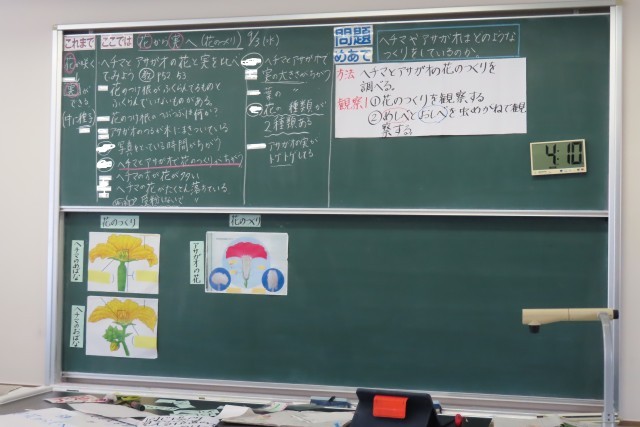 これまで
花が咲く
実が
できる
ここでは 花から実へ(花のつくり) 9/3(水)
ヘチマとアサガオの花と実を比べ
てみよう 教 P52, 53
花のつけ根がふくらんでるものと
ふくらんでいないものがある。
アサガオのつるが木にまきついている
写真をとっている時間がちがう
ヘチマとアサガオで花のつくりがちがう
ヘチマの方が花が大きい
ヘチマの花がたくさん落ちている
ヘチマとアサガオで
実の大きさがちがう
葉の 〃
花 〃 種類が
2種類ある
アサガオの実が
トゲトゲしてる
問題
ヘチマやアサガオはどのような
つくりをしているのか。
めあて
方法 ヘチマとアサガオの花のつくりを
調べる。
観察1 ①花のつくりを観察する
②めしべとおしべを虫めがねで観
察する
4:10
花のつくり
ヘチマのめばな
ヘチマのおばな
花のつくり
アサガオの花